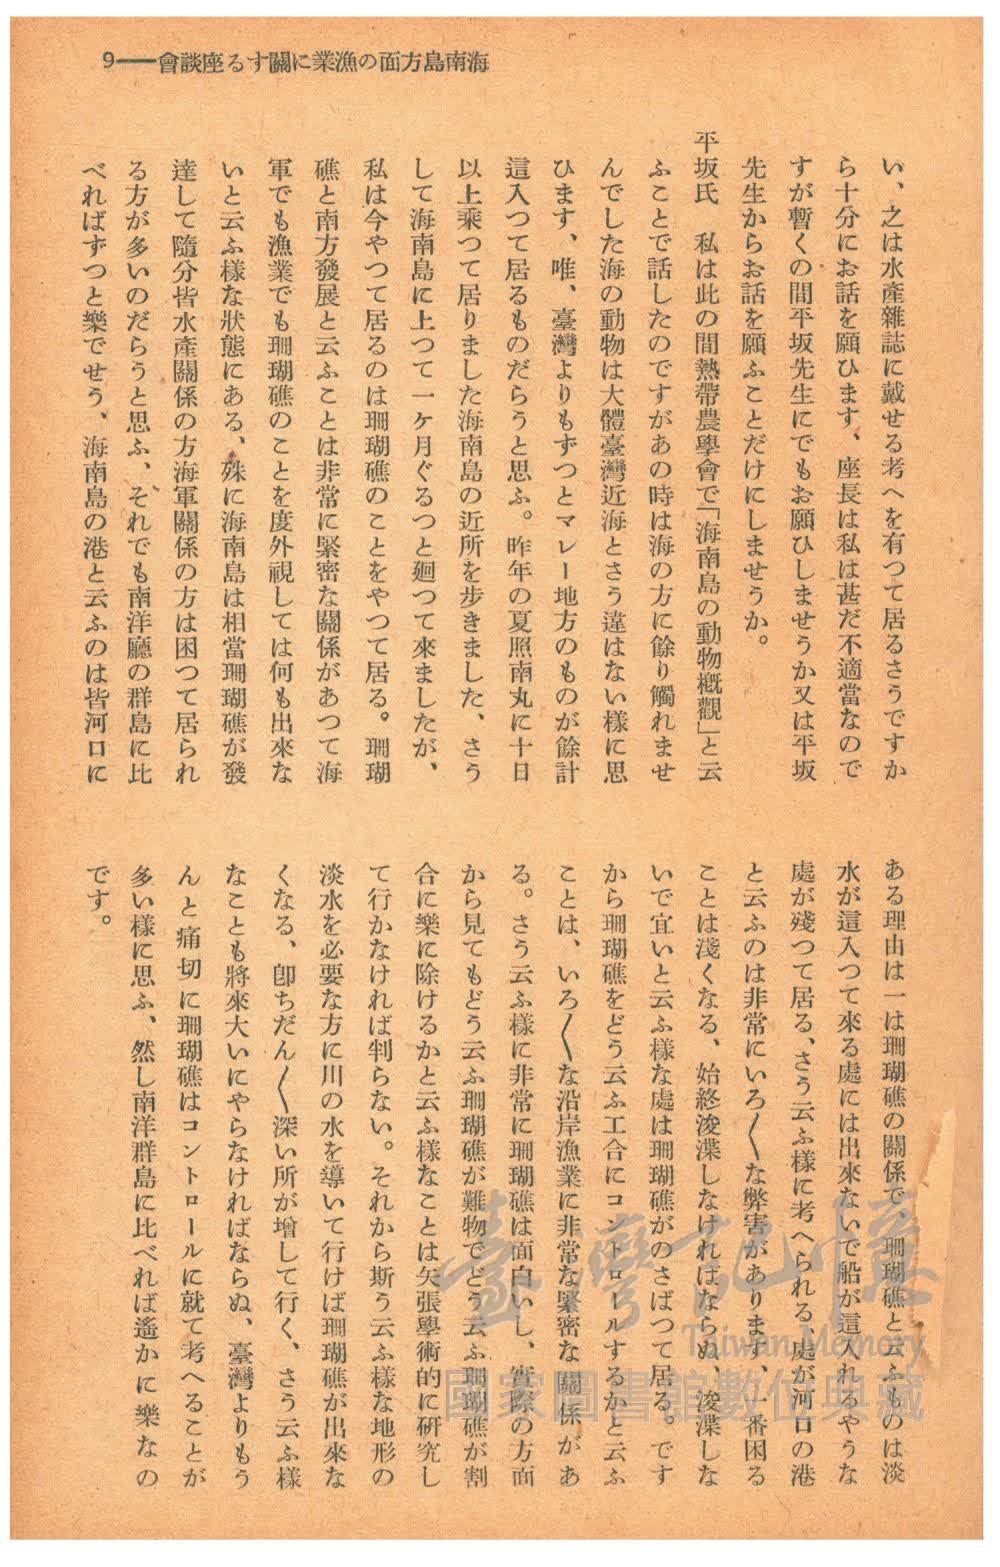 9——會談座るす關に業漁の面方島南海
い、之は水產雜誌に戴せる考へを有つて居るさうですか
ら十分にお話を願ひます、座長は私は甚だ不適當なので
すが暫くの間平坂先生にでもお願ひしませうか又は平坂
先生からお話を願ふことだけにしませうか。
平坂氏　私は此の間熱帶農學會で「海南島の動物槪觀」と云
ふことで話したのですがあの時は海の方に餘り觸れませ
んでした海の動物は大體臺灣近海とさう違はない樣に思
ひます、唯、臺灣よりもずつとマレー地方のものが餘計
這入つて居るものだらうと思ふ。昨年の夏照南丸に十日
以上乘つて居りました海南島の近所を步きました、さう
して海南島に上つて一ケ月ぐるつと廻つて來ましたが、
私は今やつて居るのは珊瑚礁のことをやつて居る。珊瑚
礁と南方發展と云ふことは非常に緊密な關係があつて海
軍でも漁業でも珊瑚礁のことを度外視しては何も出來な
いと云ふ樣な狀態にある、殊に海南島は相當珊瑚礁が發
達して隨分皆水產關係の方海軍關係の方は困つて居られ
る方が多いのだらうと思ふ、それでも南洋廳の群島に比
べればずつと樂でせう、海南島の港と云ふのは皆河口に
ある理由は一は珊瑚礁の關係で、珊瑚礁と云ふものは淡
水が這入つて來る處には出來ないで船が這入れるやうな
處が殘つて居る、さう云ふ樣に考へられる、處が河口の港
と云ふのは非常にいろ〱な弊害があります、一番困る
ことは淺くなる、始終浚渫しなければならぬ、浚渫しな
いで宜いと云ふ樣な處は珊瑚礁がのさばつて居る。です
から珊瑚礁をどう云ふ工合にコントロールするかと云ふ
ことは、いろ〱な沿岸漁業に非常な緊密な關係があ
る。さう云ふ樣に非常に珊瑚礁は面白いし、實際の方面
から見てもどう云ふ珊瑚礁が難物でどう云ふ珊瑚礁が割
合に樂に除けるかと云ふ樣なことは矢張學術的に硏究し
て行かなければ判らない。それから斯う云ふ樣な地形の
淡水を必要な方に川の水を導いて行けば珊瑚礁が出來な
くなる、卽ちだん〱深い所が增して行く、さう云ふ樣
なことも將來大いにやらなければならぬ、臺灣よりもう
んと痛切に珊瑚礁はコントロールに就て考へることが
多い樣に思ふ、然し南洋群島に比べれば遙かに樂なの
です。
臺灣記憶
Taiwan Memory
國家圖書館數位典藏